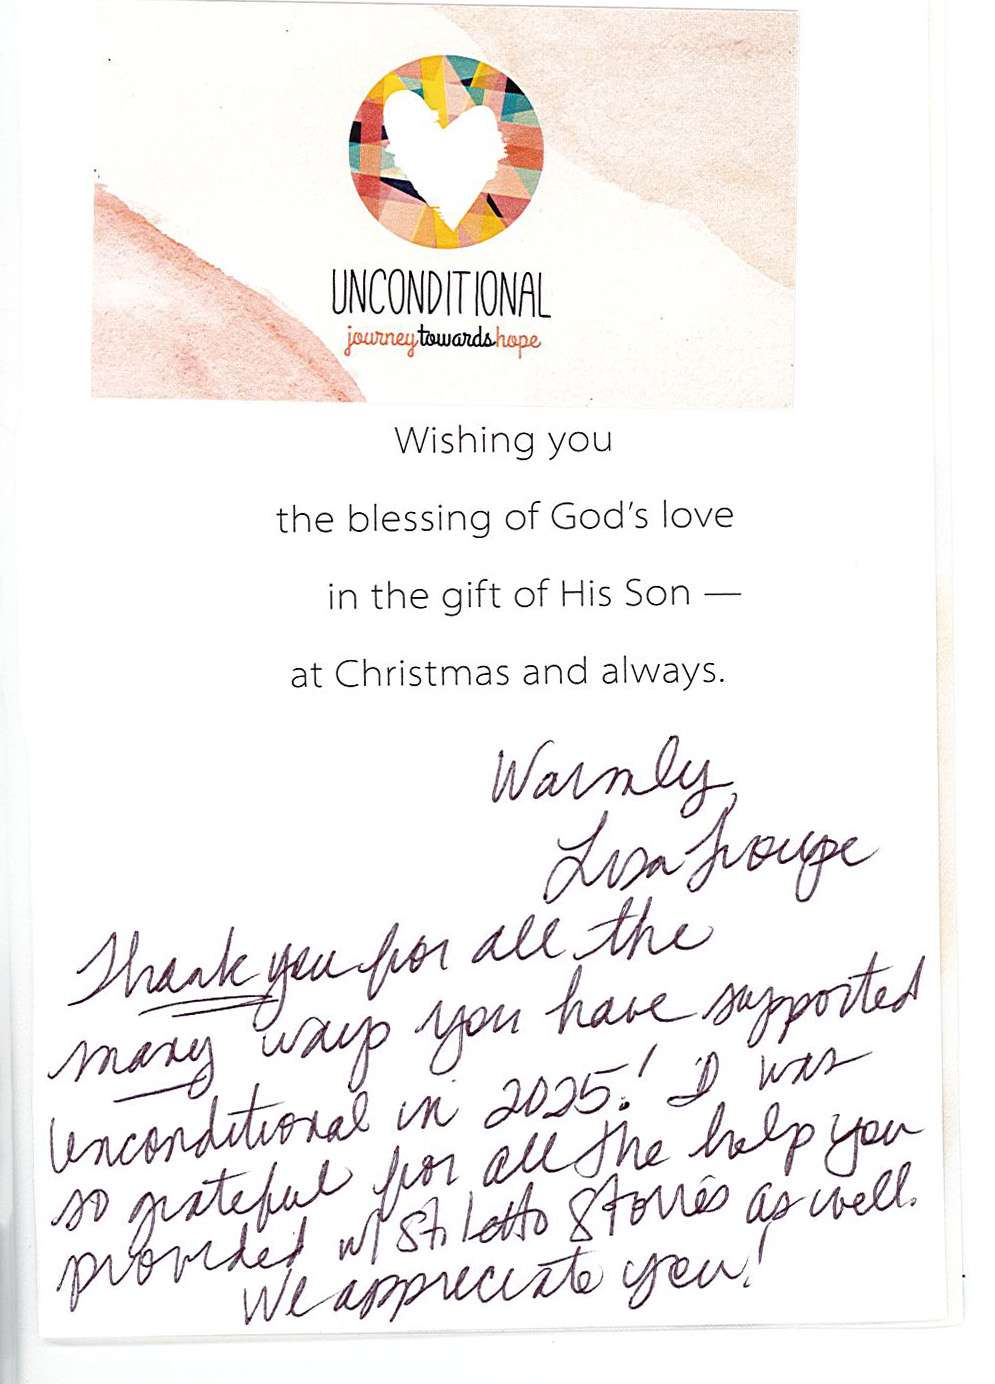 UNCONDITIONAL
journeytowardshope
Wishing you
the blessing of God's love
in the gift of His Son —
at Christmas and always.
Warmly,
Lisa
Thank you for all the
many ways you have supported
Unconditional in 2025! I was
so grateful for all the help you
provided w/ Stiletto Stories as well.
We appreciate you!